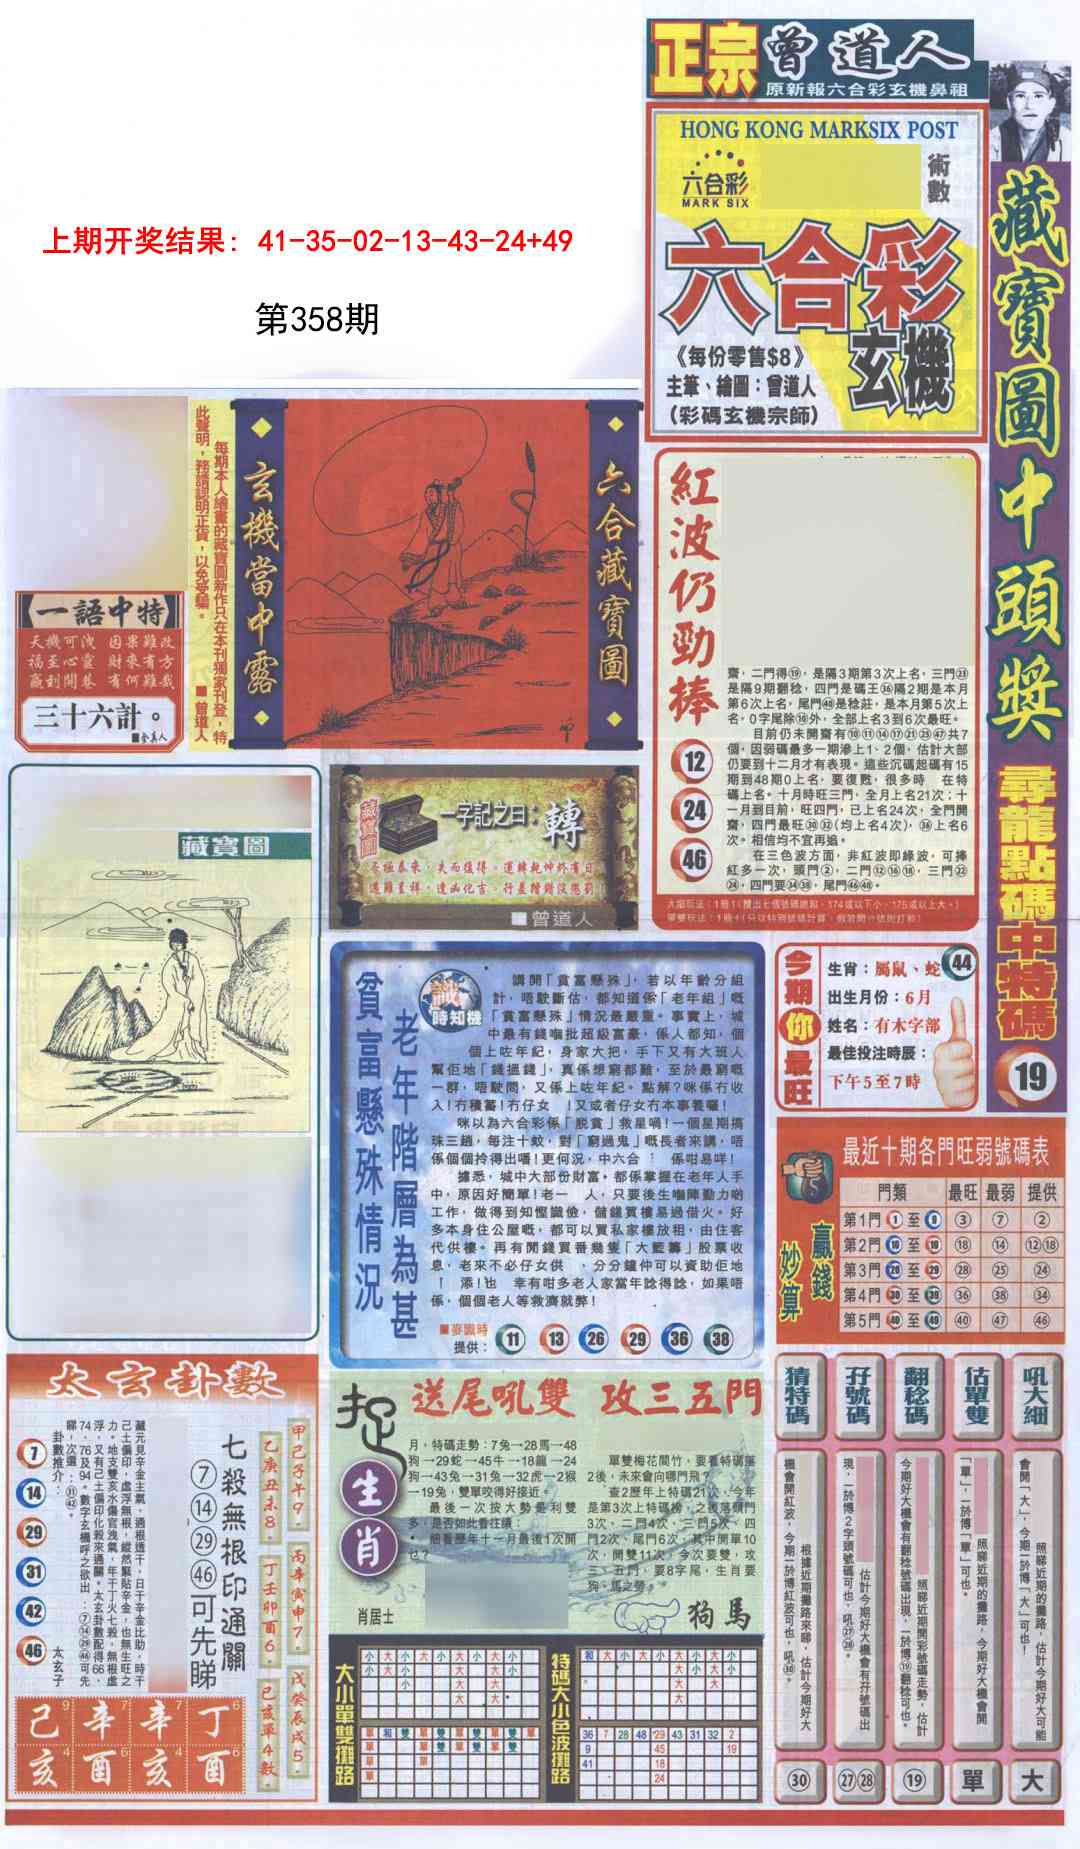 正宗曾道人
原新報六合彩玄機鼻祖
HONG KONG MARKSIX POST
六合彩
MARK SIX
術數
六合彩
玄機
《每份零售$8》
主筆、繪圖：曾道人
（彩碼玄機宗師）
藏寶圖中頭獎
尋龍點碼中特碼
19
上期开奖结果: 41-35-02-13-43-24+49
第358期
每期本人繪畫的藏寶圖新作只在本刊獨家刊登，特
此聲明，務請認明正貨，以免受騙。
■曾道人
玄機當中露
六合藏寶圖
【一語中特】
天機可洩 因果難改
福至心靈 財來有方
贏到開巷 有何難哉
三十六計。
藏寶圖
藏寶圖
一字記之曰：轉
■曾道人
紅波仍勁捧
12
24
46
齋，二門得⑲，是隔3期第3次上名，三門㉓
是隔9期翻稔，四門是碼王㊱隔2期是本月
第6次上名，尾門㊽是稔莊，是本月第5次上
名，0字尾除⑩外，全部上名3到6次最旺。
目前仍未開齋有⑩⑪⑭⑰㉑㉕㊼共7
個，因弱碼最多一期滲上1、2個，估計大部
仍要到十二月才有表現。這些沉碼起碼有15
期到48期0上名，要復甦，很多時 在特
碼上名。十月時旺三門，全月上名21次；十
一月到目前，旺四門，已上名24次，全門開
齋，四門最旺㉚㉜(均上名4次)，㊱上名6
次。相信均不宜再追。
在三色波方面，非紅波即綠波，可捧
紅多一次，頭門②，二門⑫⑯⑱，三門㉒
㉔，四門要㉞㊳，尾門㊻㊽。
今期你最旺
生肖：屬鼠、蛇 44
出生月份：6月
姓名：有木字部
最佳投注時辰：
下午5至7時
貧富懸殊情況
老年階層為甚
識時知機
講開「貧富懸殊」，若以年齡分組
計，唔駛斷估，都知道係「老年組」嘅
「貧富懸殊」情況最嚴重。事實上，城
中最有錢嗰批超級富豪，係人都知，個
個上咗年紀，身家大把，手下又有大班人
幫佢地「錢搵錢」，真係想窮都難，至於最窮嘅
一群，唔駛問，又係上咗年紀。點解?咪係冇收
入!冇積蓄!冇仔女 !又或者仔女冇本事養囉!
咪以為六合彩係「脫貧」救星喎!一個星期搞
珠三趟，每注十蚊，對「窮過鬼」嘅長者來講，唔
係個個拎得出嚿!更何況，中六合 係咁易咩!
據悉，城中大部份財富，都係掌握在老年人手
中，原因好簡單!老一 人，只要後生嗰陣勤力啲
工作，做得到知慳識儉，儲錢買樓易過借火。好
多本身住公屋嘅，都可以買私家樓放租，由住客
代供樓。再有閒錢買番幾隻「大藍籌」股票收
息，老來不必仔女供 、分分鐘仲可以資助佢地
添!也 幸有咁多老人家當年諗得諗，如果唔
係，個個老人等救濟就弊!
■麥識時
提供：11 13 26 29 36 38
最近十期各門旺弱號碼表
贏錢妙算
門類 最旺 最弱 提供
第1門 1至9 ③ ⑦ ②
第2門 10至19 ⑱ ⑭ ⑫⑱
第3門 20至29 ㉘ ㉕ ㉔
第4門 30至39 ㊱ ㊳ ㉞
第5門 40至49 ㊵ ㊼ ㊻
太玄卦數
甲己子午9
乙庚丑未8
丙辛寅申7
丁壬卯酉6
戊癸辰戌5
巳亥單4數
七殺無根印通關
⑦⑭㉙㊻可先睇
卦數推介：
7
14
29
31
42
46
太玄子
己 辛 辛 丁
亥 酉 亥 酉
捉生肖
送尾吼雙 攻三五門
月，特碼走勢：7兔→28馬→48
狗→29蛇→45牛→18龍→24
狗→43兔→31兔→32虎→2猴
→19兔，雙單咬得好接近。
最後一次按大勢是利雙
多，是否如此看往績：
細看歷年十一月最後1次開
乜？
肖居士
單雙梅花間竹，要看特碼落
2後，未來會向哪門飛？
查2歷年上特碼21次，今年
是第3次上特碼榜，之後落頭門
3次、二門4次、三門5次、四
門2次、尾門6次，其中開單10
次，開雙11次，今次要雙，攻
三、五門，要8字尾，生肖要
狗、馬之勢。
狗馬
大小單雙攤路
特碼大小色波攤路
36 7 28 48 29 43 31 32 2
9 45 19
41 18
24
猜特碼
根據近期攤路來睇，估計今期好大
機會開紅波，今期一於博紅波可也，吼㉚。
㉚
孖號碼
估計今期好大機會有孖號碼出
現，一於博2字頭號碼可也，吼㉗㉘。
㉗㉘
翻稔碼
照睇近期開彩號碼走勢，估計
今期好大機會有翻稔號碼出現，一於博⑲翻稔可也。
⑲
估單雙
照睇近期的攤路，今期好大機會開
「單」，一於博「單」可也。
單
吼大細
照睇近期的攤路，估計今期好大可能
會開「大」，今期一於博「大」可也！
大